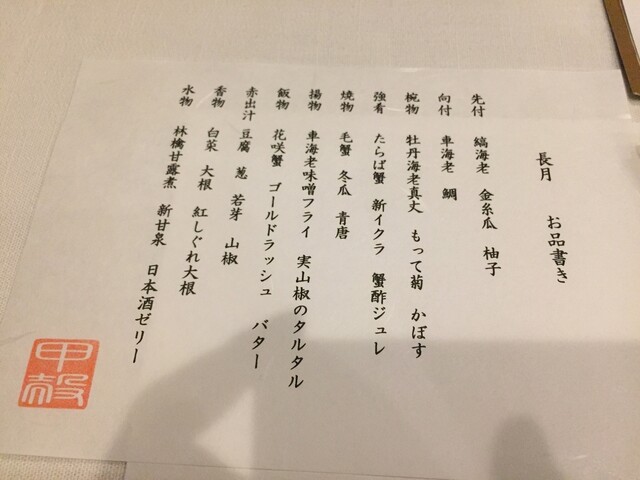 長月 お品書き
先付 縞海老 金糸瓜 柚子
向付 車海老 鯛
椀物 牡丹海老真丈 もって菊 かぼす
強肴 たらば蟹 新イクラ 蟹酢ジュレ
焼物 毛蟹 冬瓜 青唐
揚物 車海老味噌フライ 実山椒のタルタル
飯物 花咲蟹 ゴールドラッシュ バター
赤出汁 豆腐 葱 若芽 山椒
香物 白菜 大根 紅しぐれ大根
水物 林檎甘露煮 新甘泉 日本酒ゼリー
甲殻